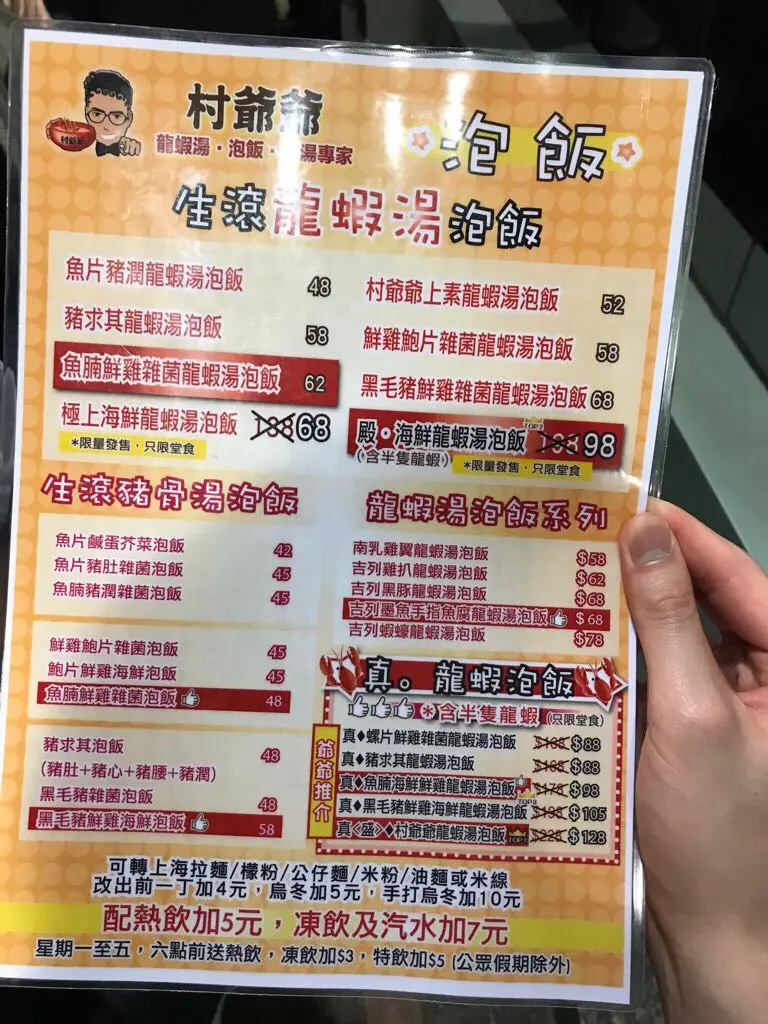 村爺爺
龍蝦湯・泡飯・湯專家
村爺爺
泡飯
生滾龍蝦湯泡飯
魚片豬潤龍蝦湯泡飯 48
豬求其龍蝦湯泡飯 58
魚腩鮮雞雜菌龍蝦湯泡飯 62
極上海鮮龍蝦湯泡飯 68
*限量發售，只限堂食
村爺爺上素龍蝦湯泡飯 52
鮮雞鮑片雜菌龍蝦湯泡飯 58
黑毛豬鮮雞雜菌龍蝦湯泡飯 68
殿・海鮮龍蝦湯泡飯 TOP2 98
(含半隻龍蝦) *限量發售，只限堂食
生滾豬骨湯泡飯
魚片鹹蛋芥菜泡飯 42
魚片豬肚雜菌泡飯 45
魚腩豬潤雜菌泡飯 45
鮮雞鮑片雜菌泡飯 45
鮑片鮮雞海鮮泡飯 45
魚腩鮮雞雜菌泡飯 48
豬求其泡飯 48
(豬肚+豬心+豬腰+豬潤)
黑毛豬雜菌泡飯 48
黑毛豬鮮雞海鮮泡飯 58
龍蝦湯泡飯系列
南乳雞翼龍蝦湯泡飯 $58
吉列雞扒龍蝦湯泡飯 $62
吉列黑豚龍蝦湯泡飯 $68
吉列墨魚手指魚腐龍蝦湯泡飯 $68
吉列蝦蠔龍蝦湯泡飯 $78
真。龍蝦泡飯
*含半隻龍蝦 (只限堂食)
爺爺推介
真♦螺片鮮雞雜菌龍蝦湯泡飯 $168 $88
真♦豬求其龍蝦湯泡飯 $168 $88
真♦魚腩海鮮鮮雞龍蝦湯泡飯 TOP3 $178 $98
真♦黑毛豬鮮雞海鮮龍蝦湯泡飯 $105
真<盛>♦村爺爺龍蝦湯泡飯 TOP1 $128
可轉上海拉麵/檬粉/公仔麵/米粉/油麵或米線
改出前一丁加4元，烏冬加5元，手打烏冬加10元
配熱飲加5元，凍飲及汽水加7元
星期一至五，六點前送熱飲，凍飲加$3，特飲加$5 (公眾假期除外)